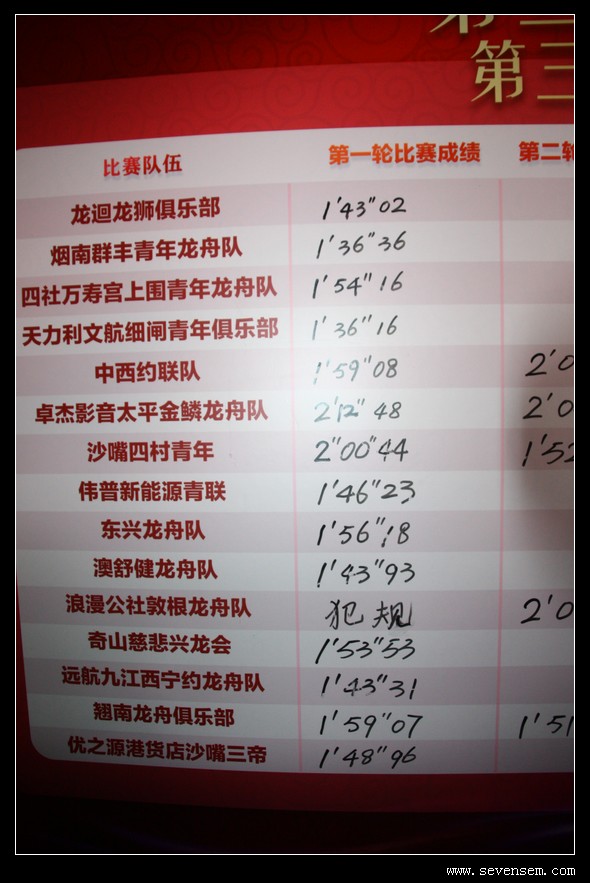 第三
比赛队伍 第一轮比赛成绩 第二轮
龙迴龙狮俱乐部 1'43"02
烟南群丰青年龙舟队 1'36"36
四社万寿宫上围青年龙舟队 1'54"16
天力利文航细闸青年俱乐部 1'36"16
中西约联队 1'59"08 2'0
卓杰影音太平金鳞龙舟队 2'12"48 2'0
沙嘴四村青年 2"00"44 1'52
伟普新能源青联 1'46"23
东兴龙舟队 1'56"18
澳舒健龙舟队 1'43"93
浪漫公社敦根龙舟队 犯规 2'0
奇山慈悲兴龙会 1'53"53
远航九江西宁约龙舟队 1'43"31
翘南龙舟俱乐部 1'59"07 1'51
优之源港货店沙嘴三帝 1'48"96
www.sevensem.com